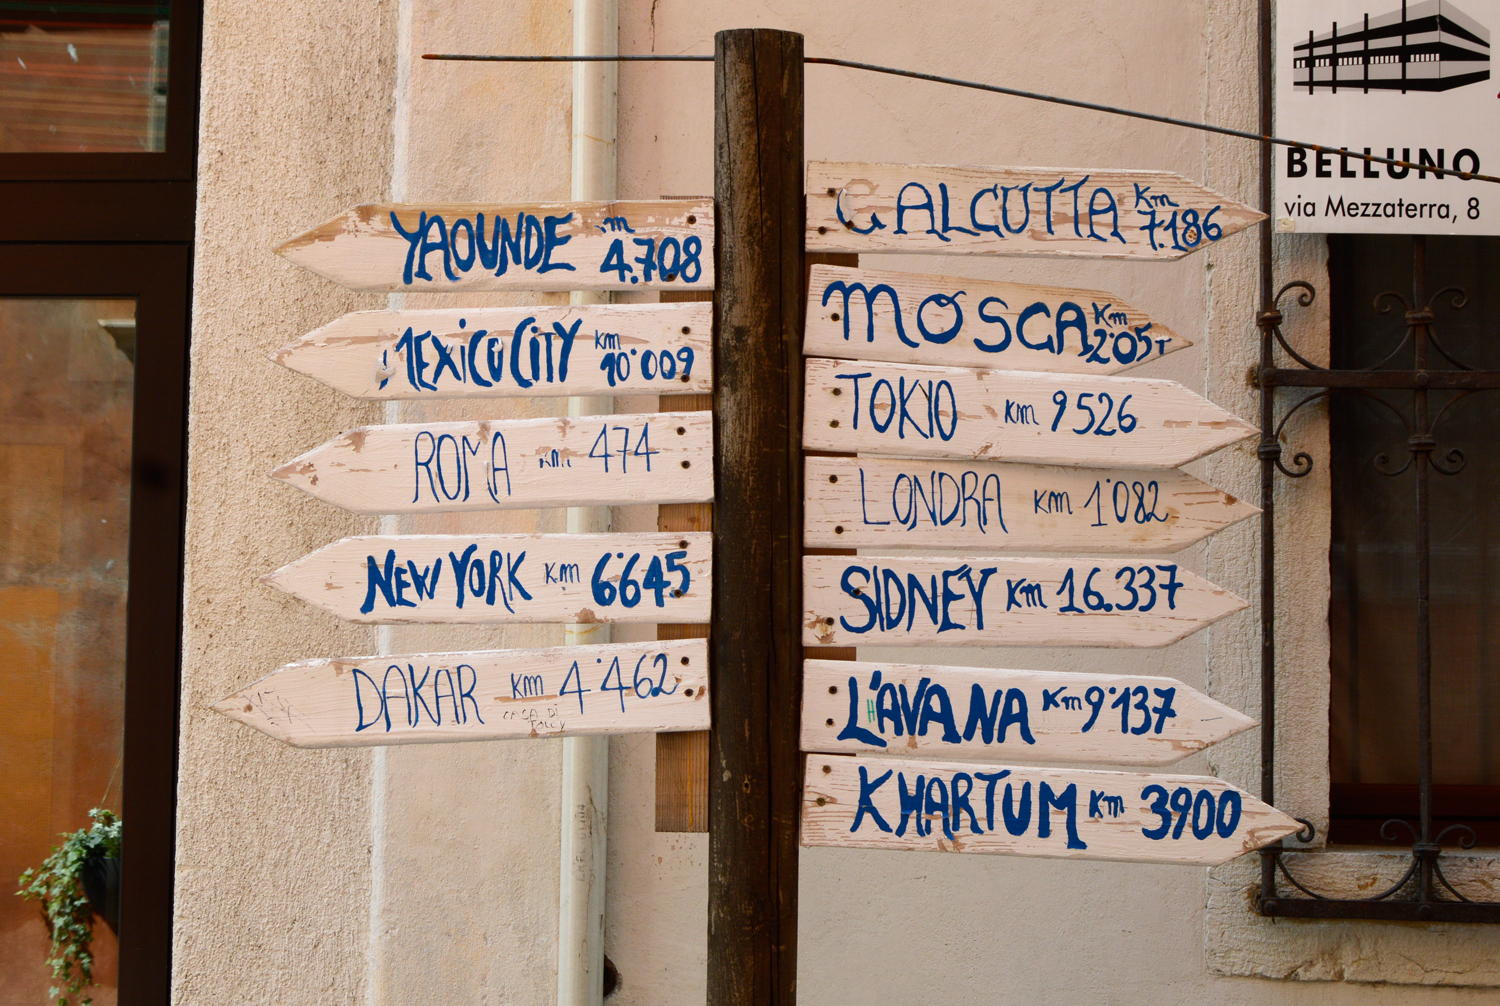 YAOUNDE km 4.708
MEXICO CITY km 10'009
ROMA km. 474
NEW YORK km 6'645
DAKAR km 4'462
CASA DI
CALCUTTA km 7.186
MOSCA km 2'057
TOKYO km 9526
LONDRA km 1'082
SIDNEY km 16.337
L'AVANA km 9'137
H
KHARTUM km 3900
BELLUNO
via Mezzaterra, 8